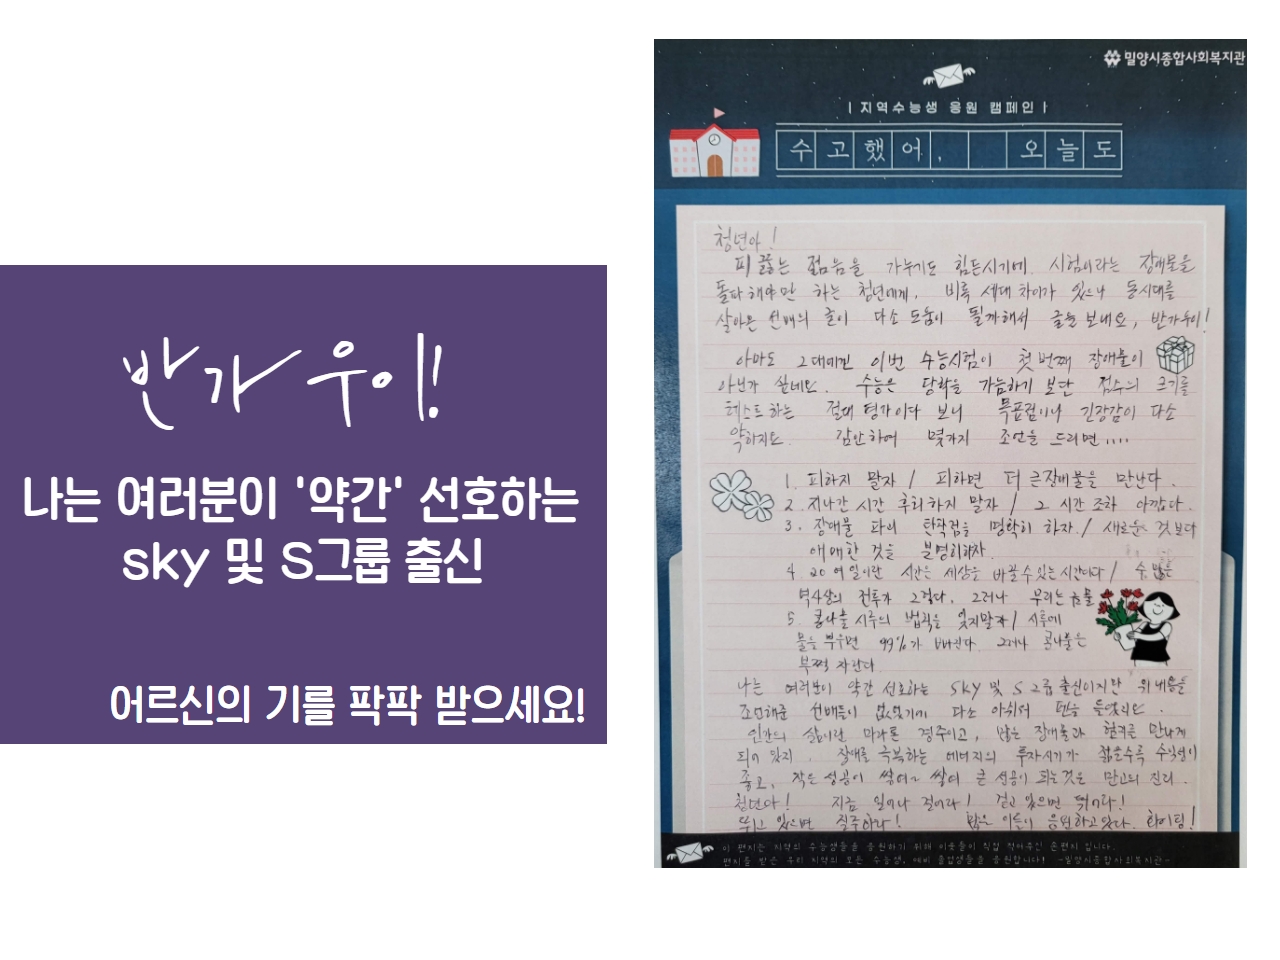 반가우이!
나는 여러분이 '약간' 선호하는
sky 및 S그룹 출신
어르신의 기를 팍팍 받으세요!
밀양시종합사회복지관
| 지역수능생 응원 캠페인 |
수고했어, 오늘도
청년아!
피 끓는 젊음을 가누기도 힘든시기에 시험이라는 장애물을
돌파해야만 하는 청년에게, 비록 세대 차이가 있으나 동시대를
살아온 선배의 글이 다소 도움이 될까해서 글을 보내요, 반가우이!
아마도 그대에겐 이번 수능시험이 첫 번째 장애물이
아닌가 싶네요. 수능은 당락을 가늠하기 보단 점수의 크기를
테스트하는 절대 평가이다 보니 목표점이나 긴장감이 다소
약하지요. 감안하여 몇가지 조언을 드리면....
1. 피하지 말자 / 피하면 더 큰장애물을 만난다.
2. 지나간 시간 후회하지 말자 / 그 시간 조차 아깝다.
3. 장애물 파의 탄착점을 명확히 하자. / 새로운 것 보다
애매한 것을 분명히하자.
4. 20여일이란 시간은 세상을 바꿀수있는 시간이다 / 수많은
역사상의 전투가 그렇다. 그러나 우리는
5. 콩나물 시루의 법칙을 잊지말자 / 시루에
물을 부우면 99%가 빠진다. 그러나 콩나물은
부쩍 자란다.
나는 여러분이 약간 선호하는 SKY 및 S그룹 출신이지만 위내용을
조언해준 선배들이 없었기에 다소 아쉬워 펜을 들었지요.
인간의 삶이란 마라톤 경주이고, 많은 장애물과 협곡을 만나게
되어 있지. 장애를 극복하는 에너지의 투자시기가 젊을수록 수익성이
좋고, 작은 성공이 쌓이고 쌓여 큰 성공이 되는것은 만고의 진리.
청년아! 지금 일어나 걸어라! 걷고 있으면 뛰어라!
뛰고 있으면 질주하라! 많은 이들이 응원하고있다. 화이팅!
이 편지는 지역의 수능생들을 응원하기 위해 이웃들이 직접 적어주신 손편지 입니다.
편지를 받은 우리 지역의 모든 수능생, 예비 졸업생들을 응원합니다! -밀양시종합사회복지관-